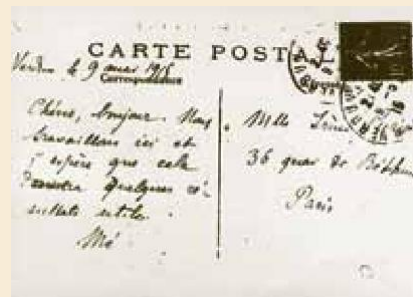 CARTE POSTALE
Verdun le 9 mai 1915
Correspondance
Chérie, bonjour. Nous
travaillons ici et
j'espère que cela
donnera quelques ré-
sultats utile.
Mé
Mlle Irène
36 quai de Béthune
Paris